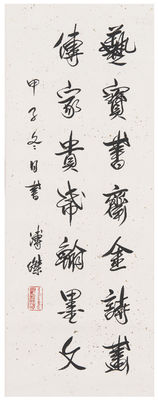 藝寶書齋金詩畫
傳家貴翰墨文
甲子冬日書
溥傑